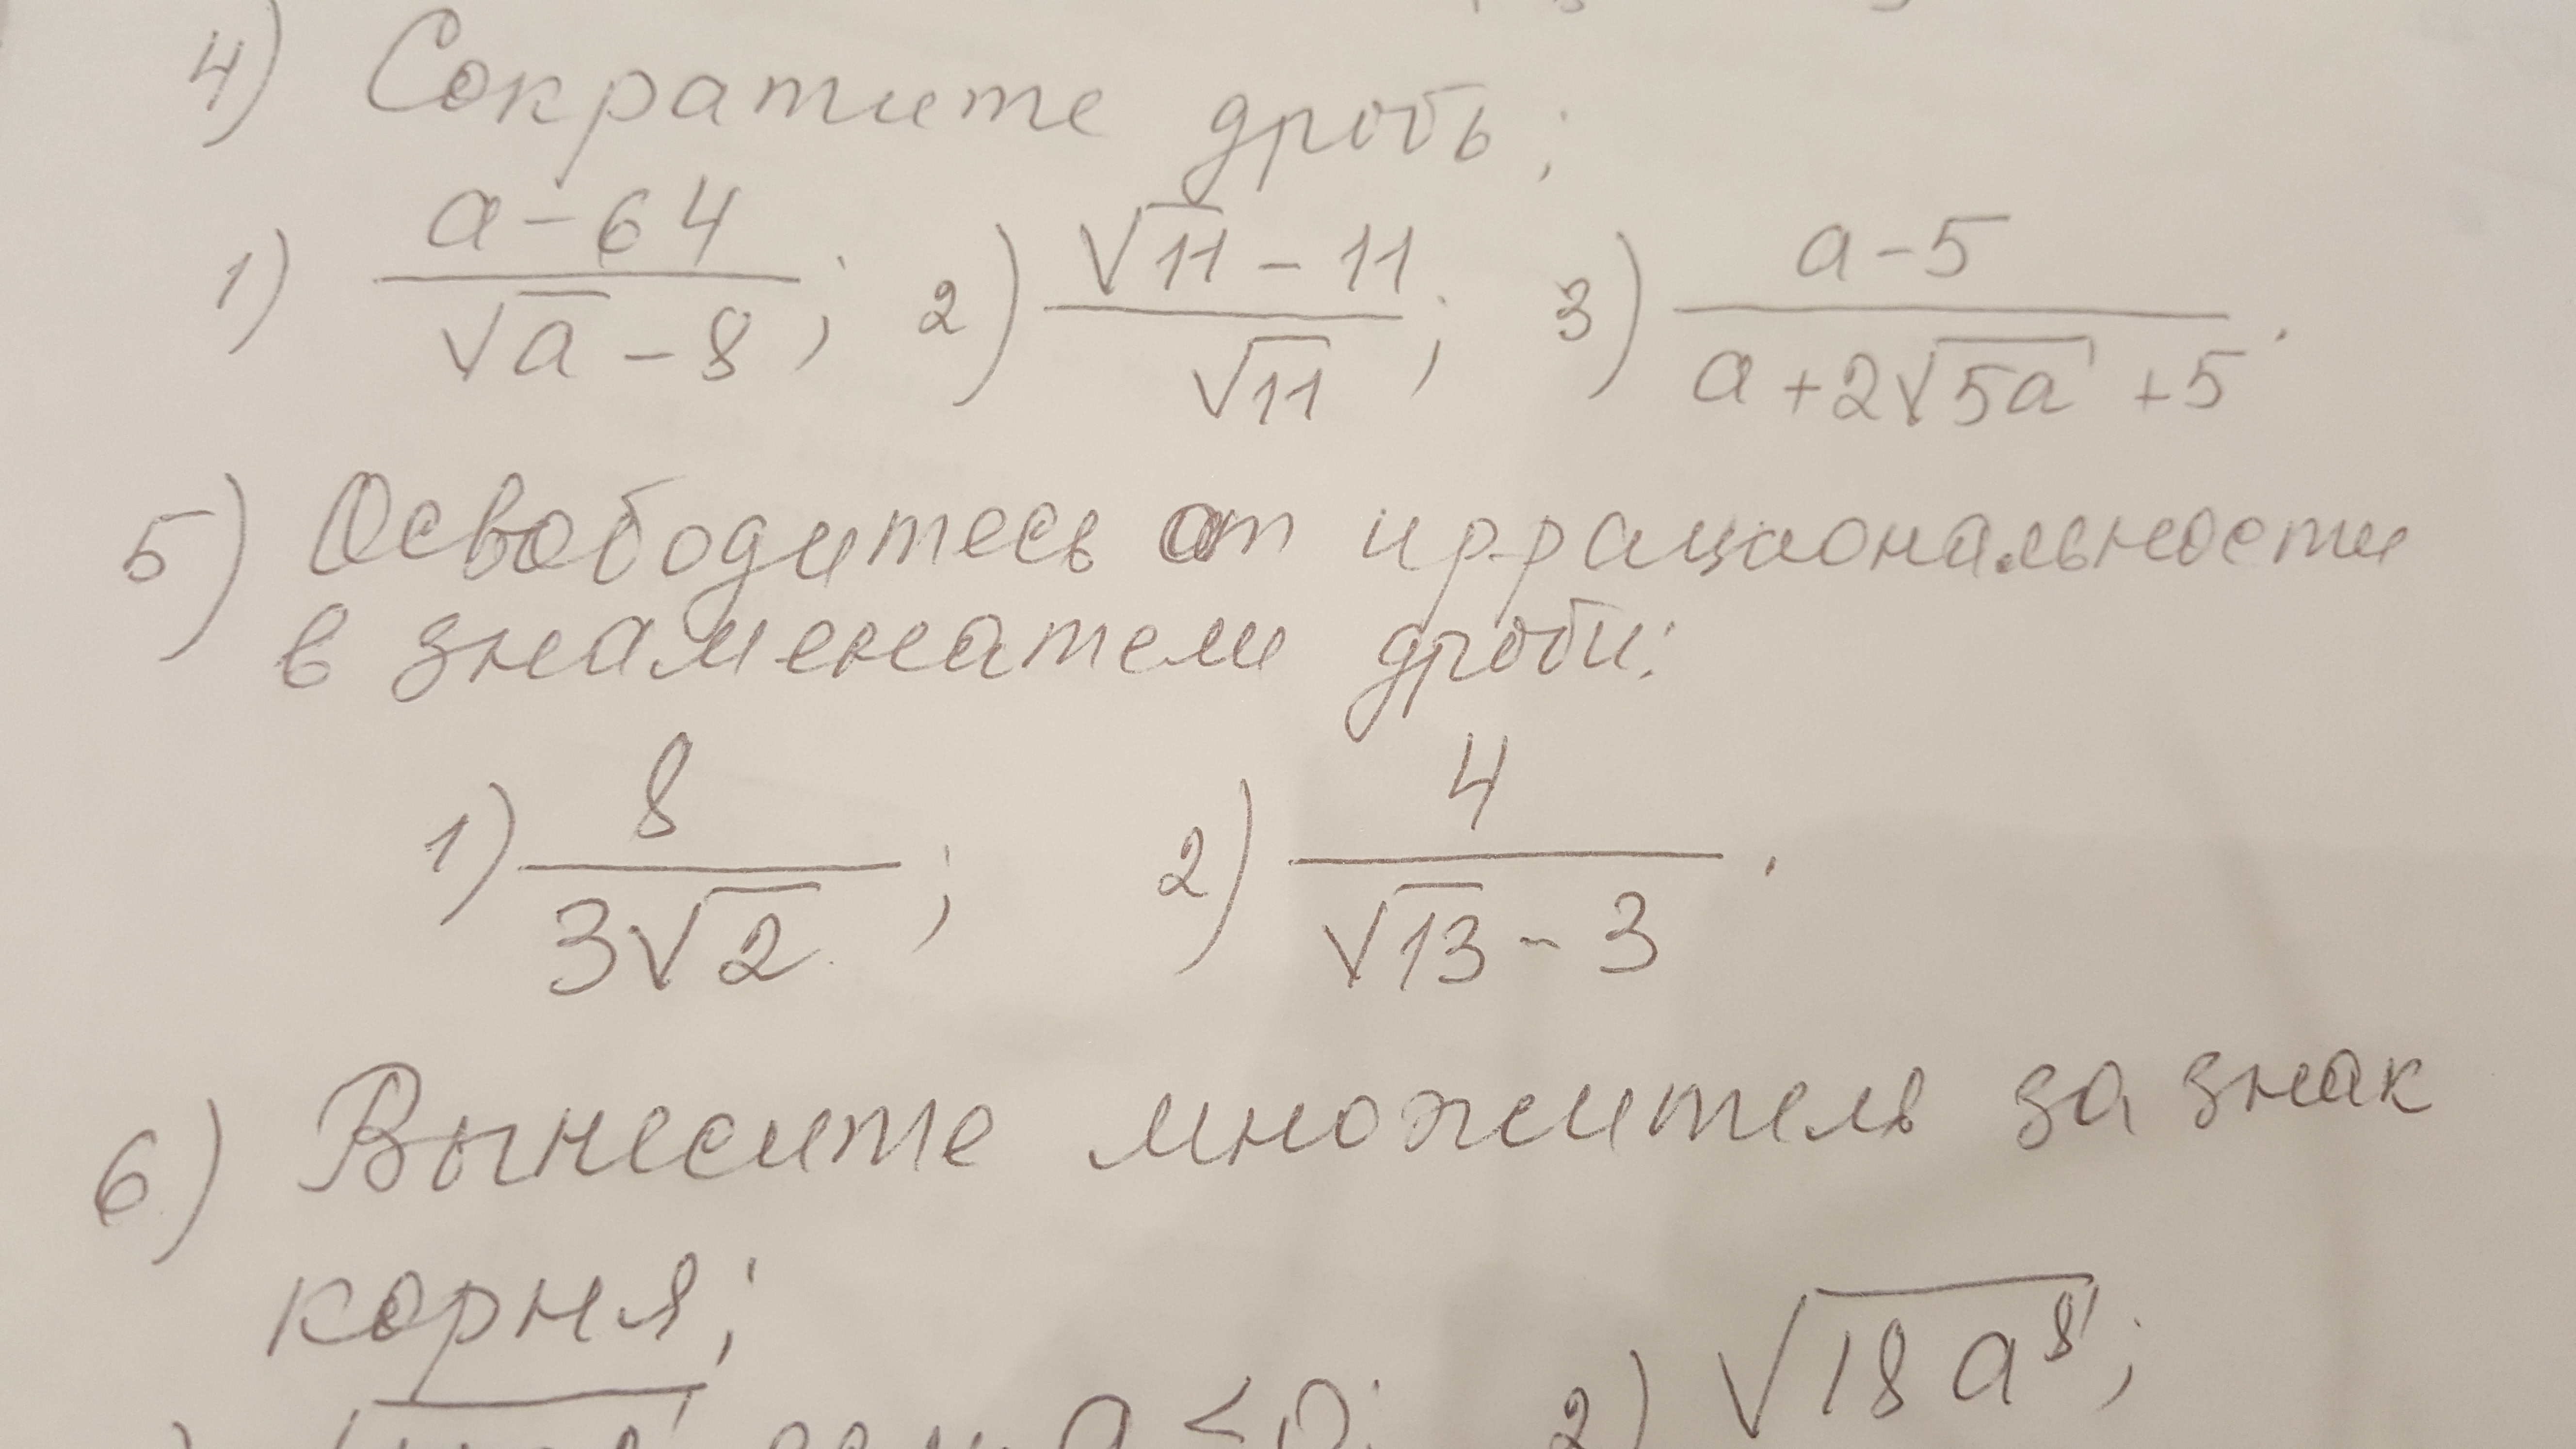 4) Сократите дробь:
1) (a-64)/(√a - 8); 2) (√11 - 11)/√11; 3) (a-5)/(a+2√5a +5).
5) Освободитесь от иррациональности
в знаменатели дроби:
1) 8/(3√2); 2) 4/(√13 - 3).
6) Вынесите множитель за знак
корня:
a < 0; 2) √18a⁸;